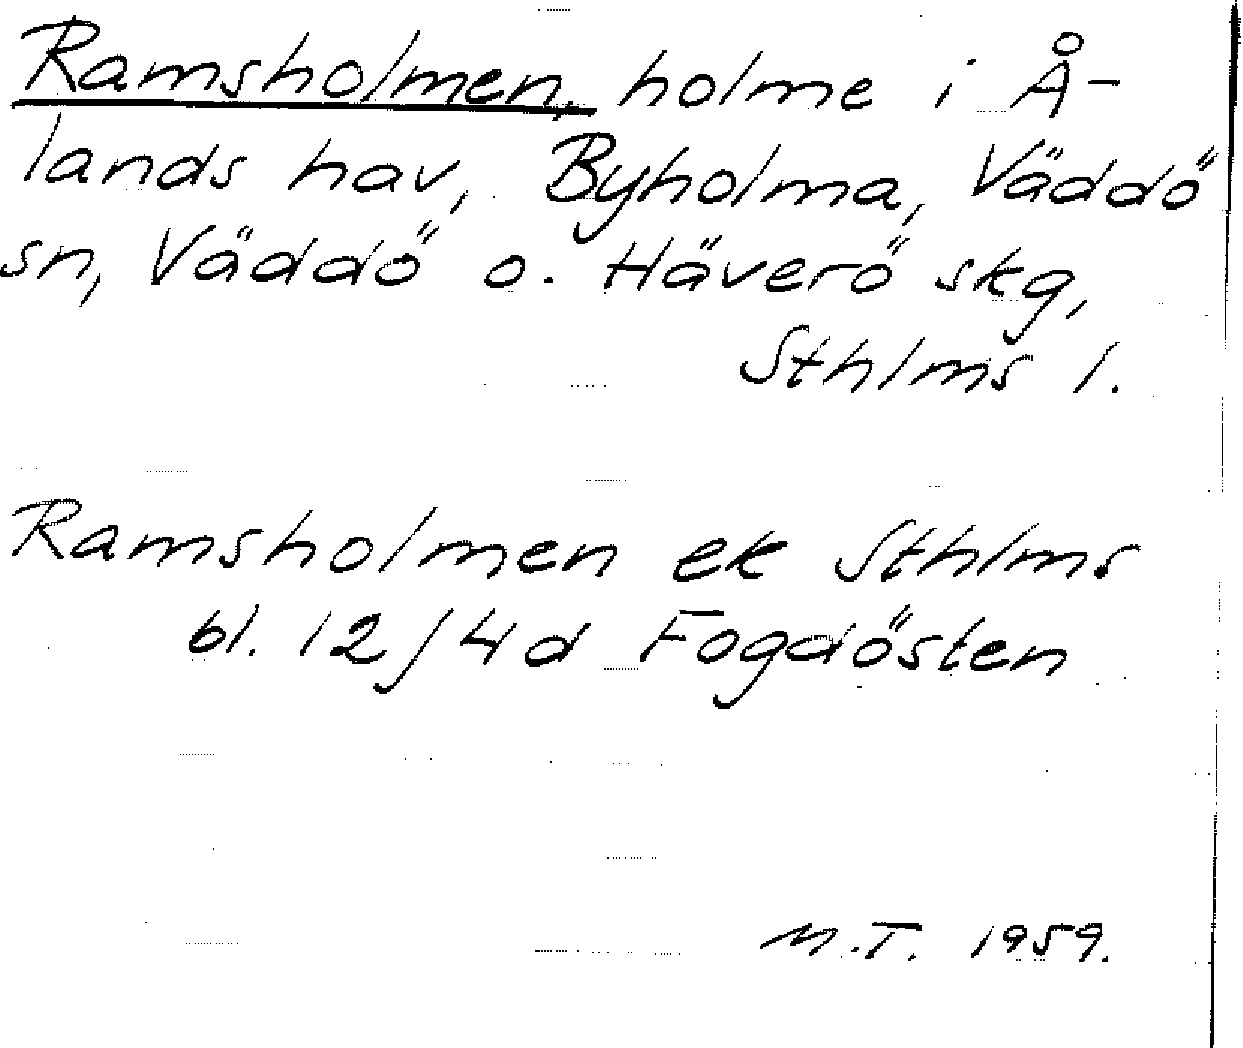 Ramsholmen, holme i Å-
lands hav, Byholma, Väddö
sn, Väddö o. Häverö skg,
Sthlms l.
Ramsholmen ek Sthlms
bl. 12/4d Fogdösten
M.T. 1959.